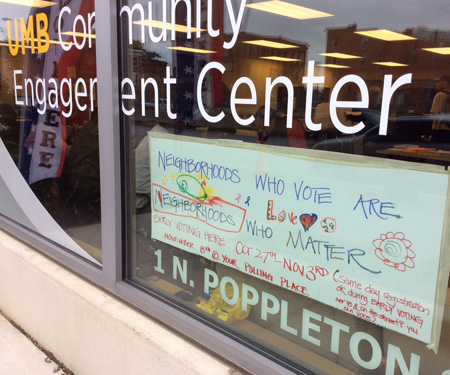 UMB Community
Engagement Center
HERE
NEIGHBORHOODS WHO VOTE ARE
NEIGHBORHOODS WHO MATTER
EARLY VOTING HERE OCT 27TH-NOV 3RD
NOVEMBER 8TH @ YOUR POLLING PLACE
(Same day registration
ok during EARLY VOTING
1 N. POPPLETON